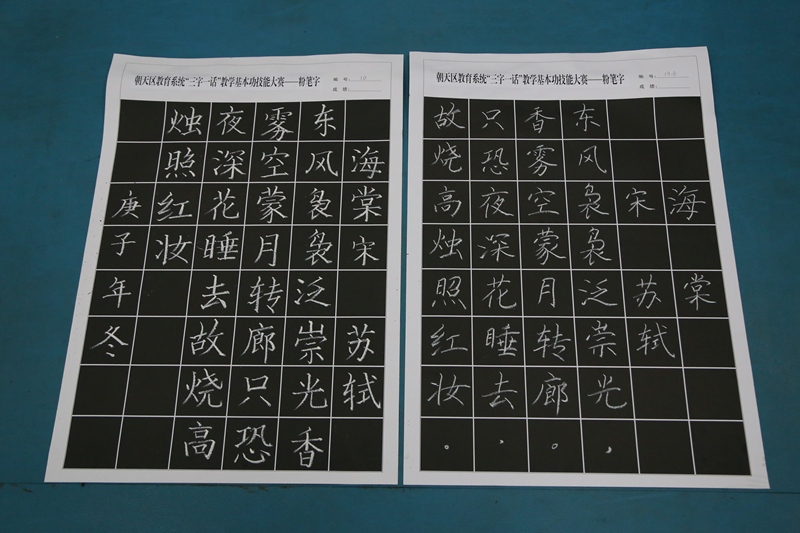 朝天区教育系统“三字一话”教学基本功技能大赛——粉笔字
编号：
成绩：
海棠宋苏轼
东风袅袅泛崇光香
雾空蒙月转廊只恐
夜深花睡去故烧高
烛照红妆
庚子年冬
朝天区教育系统“三字一话”教学基本功技能大赛——粉笔字
编号：
成绩：
海棠
宋苏轼
东风袅袅泛崇光，
香雾空蒙月转廊。
只恐夜深花睡去，
故烧高烛照红妆。